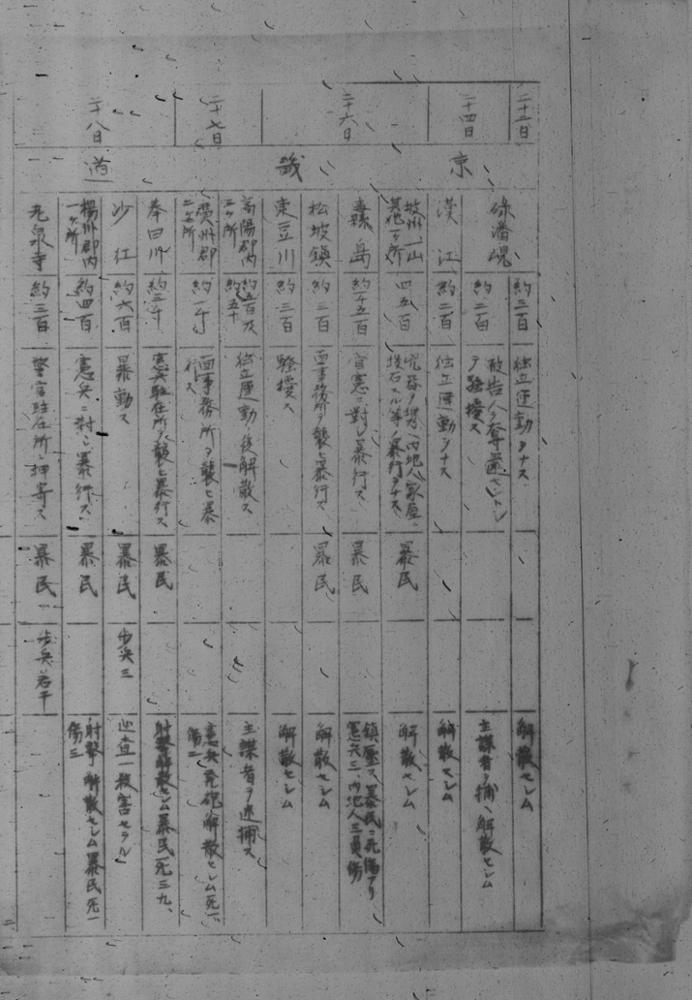 二十三日
約三百
独立運動ヲナス
解散セシム
二十四日
京
緑潘峴
約二百
被告人ヲ奪還セントシ
テ騒擾ス
主謀者ヲ捕ヘ解散セシム
漢江
約二百
独立運動ヲナス
解散セシム
二十六日
坡州一山
其他一ヶ所
四五百
内地人家屋ニ
投石スル等ノ暴行ヲナス
暴民
解散セシム
畿
纛島
官憲ニ対シ暴行ス
暴民
鎮圧ス、暴民ニ死傷アリ
憲兵三、内地人三負傷
松坡鎮
約三百
面事務所ヲ襲ヒ暴行ス
暴民
解散セシム
東豆川
約三百
騒擾ス
解散セシム
二十七日
高陽郡内
二ヶ所
約五百及
約五十
独立運動ノ後解散ス
主謀者ヲ逮捕ス
広州郡
二ヶ所
約一千
面事務所ヲ襲ヒ暴
行ス
憲兵発砲解散セシム死一、
傷二
二十八日
道
奉日川
約三千
憲兵駐在所ヲ襲ヒ暴行ス
暴民
射撃解散セシム暴民死三
沙江
約六百
暴動ス
暴民
歩兵三
巡査一殺害セラル
楊州郡内
一ヶ所
約四百
憲兵ニ対シ暴行ス
暴民
射撃解散セシム暴民死一
傷三
九泉寺
約三百
警官駐在所ニ押寄ス
暴民
歩兵若干